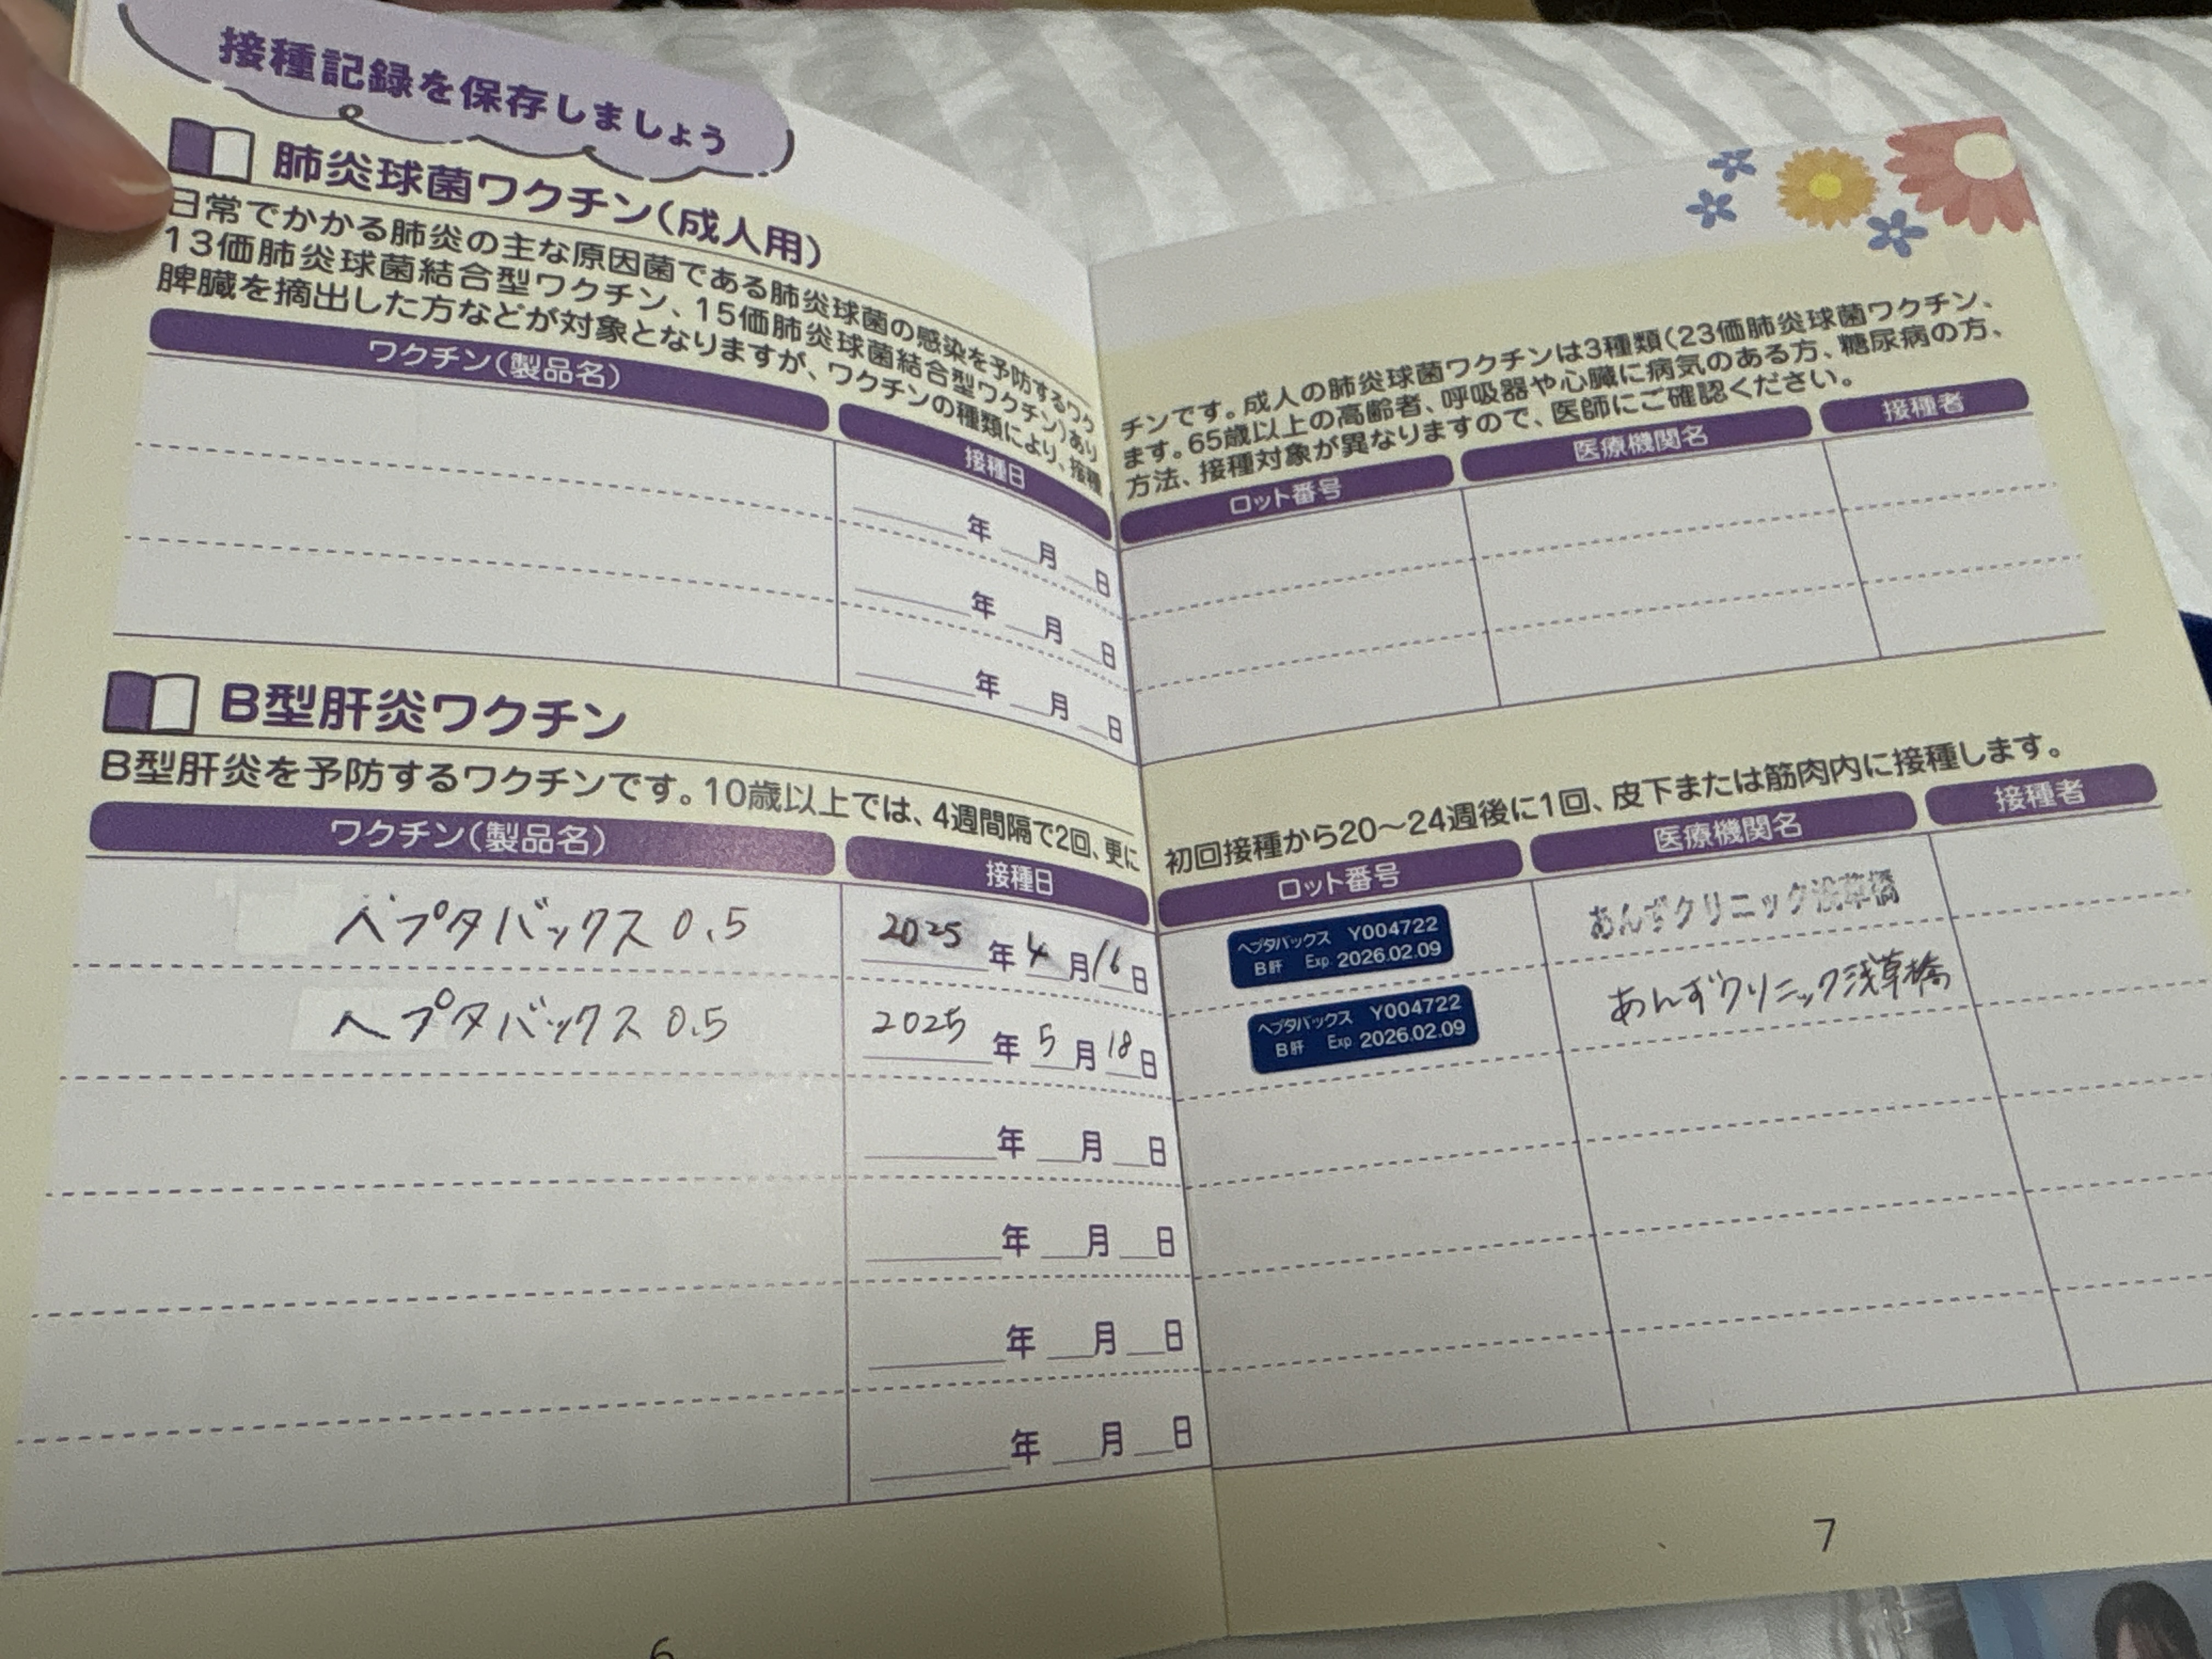 接種記録を保存しましょう
肺炎球菌ワクチン(成人用)
日常でかかる肺炎の主な原因菌である肺炎球菌の感染を予防するワク
13価肺炎球菌結合型ワクチン、15価肺炎球菌結合型ワクチン)あり
脾臓を摘出した方などが対象となりますが、ワクチンの種類により、接種
ワクチン(製品名)
接種日
年 月 日
年 月 日
年 月 日
B型肝炎ワクチン
B型肝炎を予防するワクチンです。10歳以上では、4週間隔で2回、更に
ワクチン(製品名)
接種日
ヘプタバックス 0.5
2025年4月16日
ヘプタバックス 0.5
2025年5月18日
年 月 日
年 月 日
年 月 日
年 月 日
6
チンです。成人の肺炎球菌ワクチンは3種類(23価肺炎球菌ワクチン、
ます。65歳以上の高齢者、呼吸器や心臓に病気のある方、糖尿病の方、
方法、接種対象が異なりますので、医師にご確認ください。
ロット番号
医療機関名
接種者
初回接種から20～24週後に1回、皮下または筋肉内に接種します。
ロット番号
医療機関名
接種者
ヘプタバックス Y004722
B肝 Exp 2026.02.09
あんずクリニック浅草橋
ヘプタバックス Y004722
B肝 Exp 2026.02.09
あんずクリニック浅草橋
7